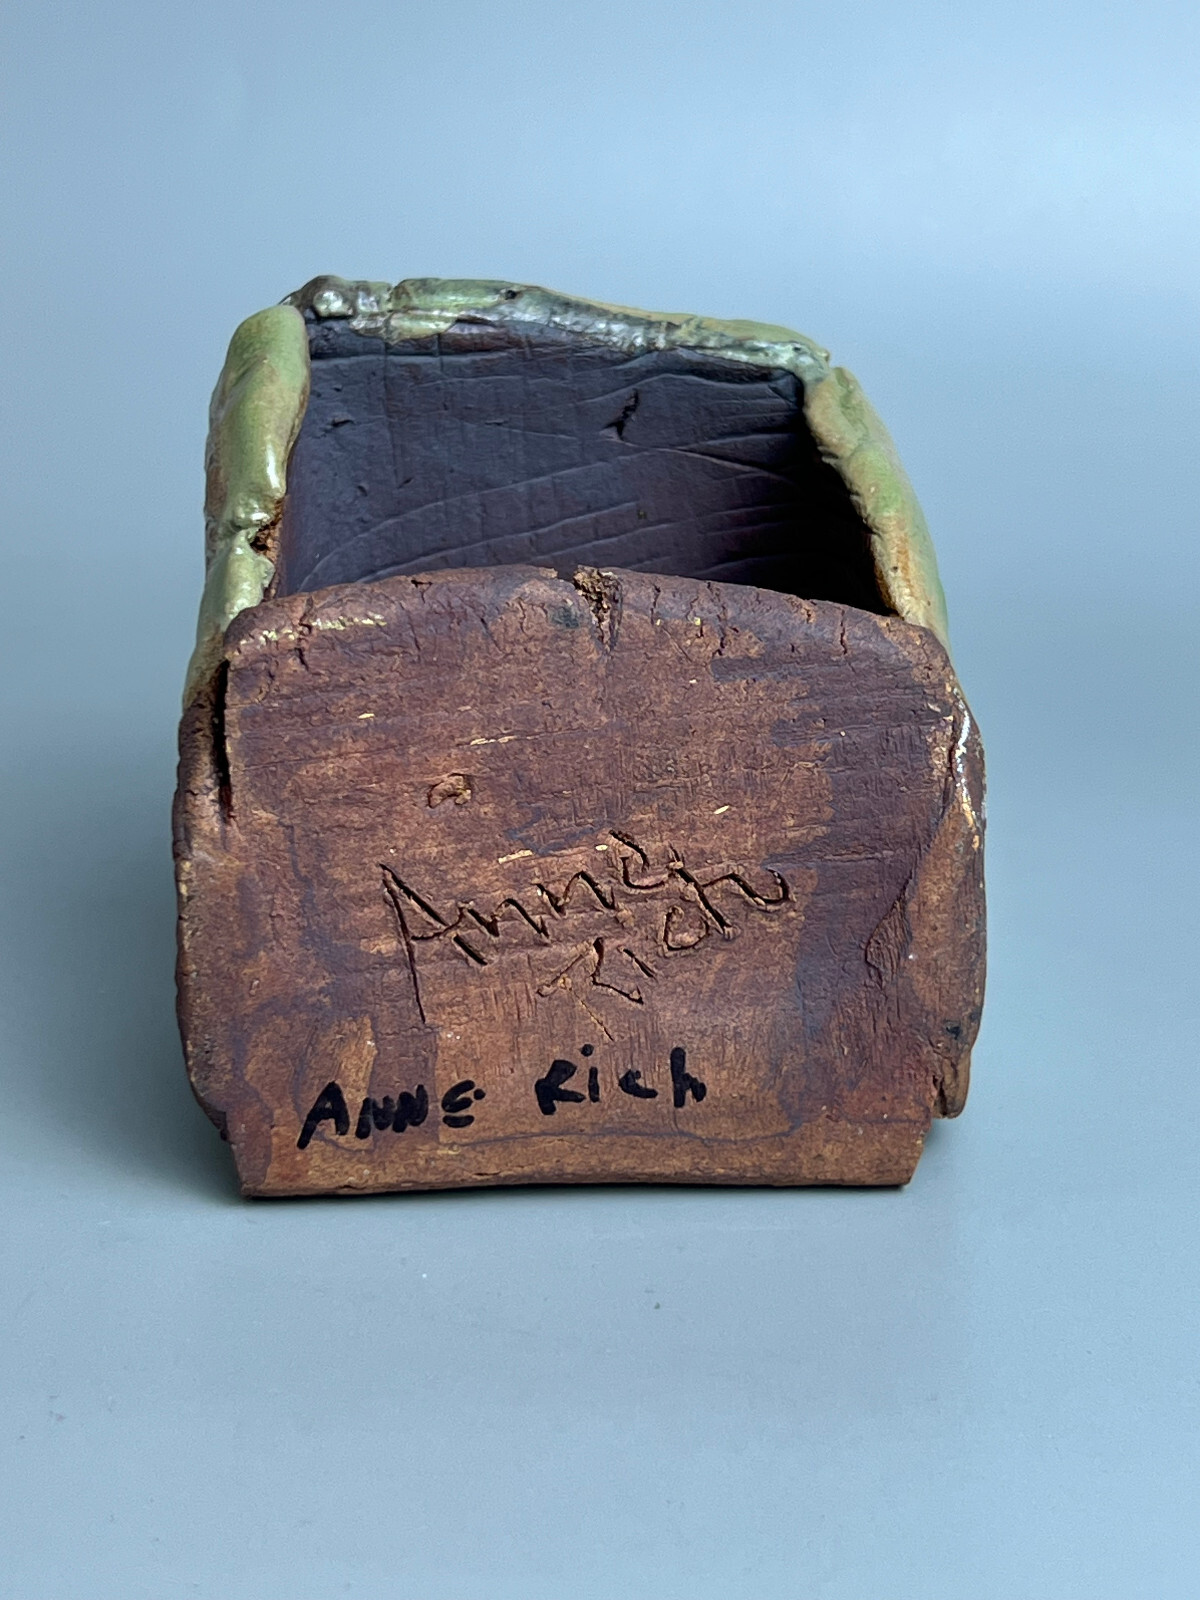 Anne
Rich
ANNE Rich